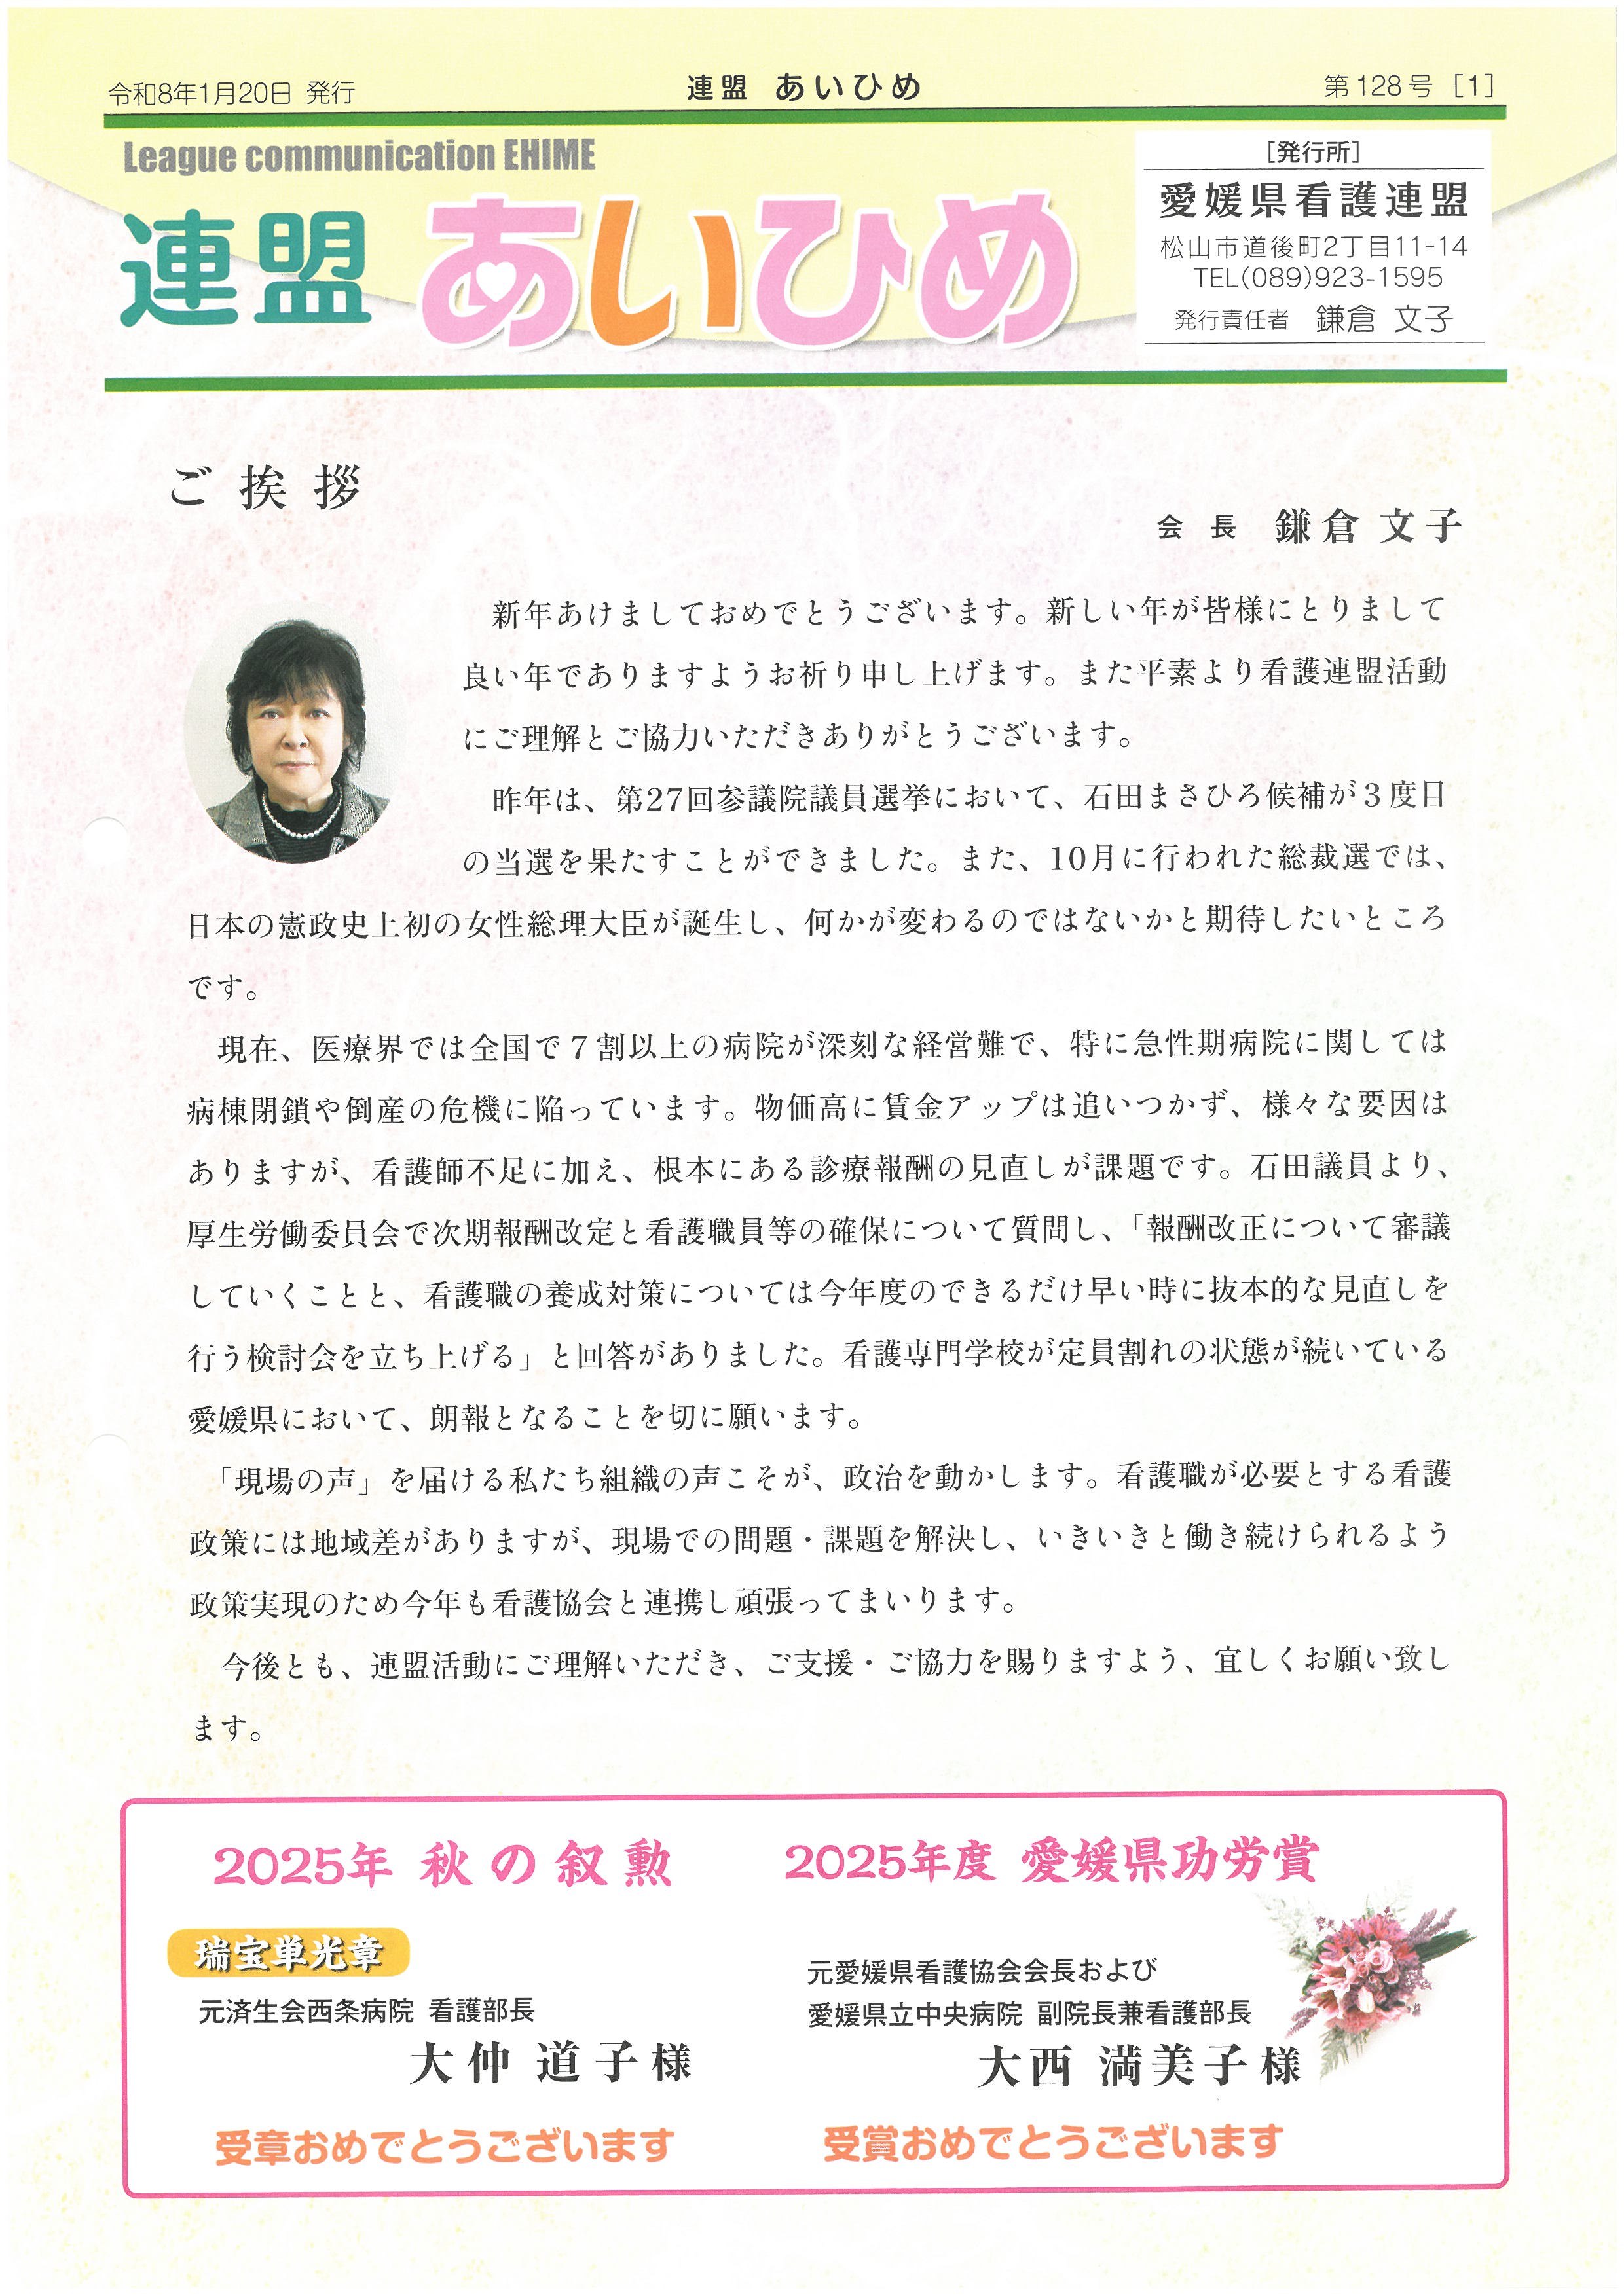 令和8年1月20日 発行
連盟 あいひめ
第128号 [1]
League communication EHIME
連盟 あいひめ
[発行所]
愛媛県看護連盟
松山市道後町2丁目11-14
TEL(089)923-1595
発行責任者 鎌倉 文子
ご挨拶
会長 鎌倉 文子
新年あけましておめでとうございます。新しい年が皆様にとりまして
良い年でありますようお祈り申し上げます。また平素より看護連盟活動
にご理解とご協力いただきありがとうございます。
昨年は、第27回参議院議員選挙において、石田まさひろ候補が3度目
の当選を果たすことができました。また、10月に行われた総裁選では、
日本の憲政史上初の女性総理大臣が誕生し、何かが変わるのではないかと期待したいところ
です。
現在、医療界では全国で7割以上の病院が深刻な経営難で、特に急性期病院に関しては
病棟閉鎖や倒産の危機に陥っています。物価高に賃金アップは追いつかず、様々な要因は
ありますが、看護師不足に加え、根本にある診療報酬の見直しが課題です。石田議員より、
厚生労働委員会で次期報酬改定と看護職員等の確保について質問し、「報酬改正について審議
していくことと、看護職の養成対策については今年度のできるだけ早い時に抜本的な見直しを
行う検討会を立ち上げる」と回答がありました。看護専門学校が定員割れの状態が続いている
愛媛県において、朗報となることを切に願います。
「現場の声」を届ける私たち組織の声こそが、政治を動かします。看護職が必要とする看護
政策には地域差がありますが、現場での問題・課題を解決し、いきいきと働き続けられるよう
政策実現のため今年も看護協会と連携し頑張ってまいります。
今後とも、連盟活動にご理解いただき、ご支援・ご協力を賜りますよう、宜しくお願い致し
ます。
2025年 秋の叙勲
瑞宝単光章
元済生会西条病院 看護部長
大仲 道子様
受章おめでとうございます
2025年度 愛媛県功労賞
元愛媛県看護協会会長および
愛媛県立中央病院 副院長兼看護部長
大西 満美子様
受賞おめでとうございます